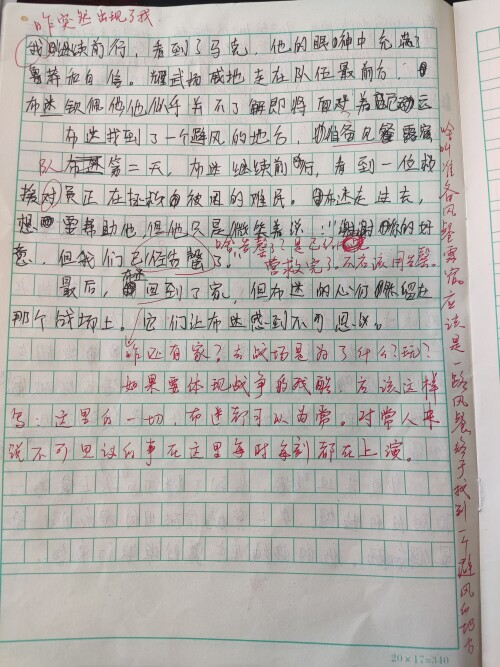 咋突然出现了我
我继续前行，看到了马克，他的眼神中充满了
骄莽和自信。耀武扬威地走在队伍最前方，
布迷钦佩他他似乎并不了解即将面对
布迷找到了一个避风的地方，准备风餐露宿
队 第二天，布迷继续前行，看到一位救
援对员正在拯救被困的难民。布迷走过去，
想要帮助他，但他只是微笑着说："谢谢你的好
意，但我们已经告罄了。
啥告罄了？是已经
营救完了。不应该用告罄
最后，布迷回到了家，但布迷的心仍停留在
那个战场上。它们让布迷感到不可思议。
咋还有家？去战场是为了什么？玩？
如果要体现战争的残酷，应该这样
写：这里的一切，布迷都习以为常。对常人来
说不可思议的事在这里每时每刻都在上演。
啥叫准备风餐露宿，应该是一路风餐终于找到一个避风的地方
20×17=340